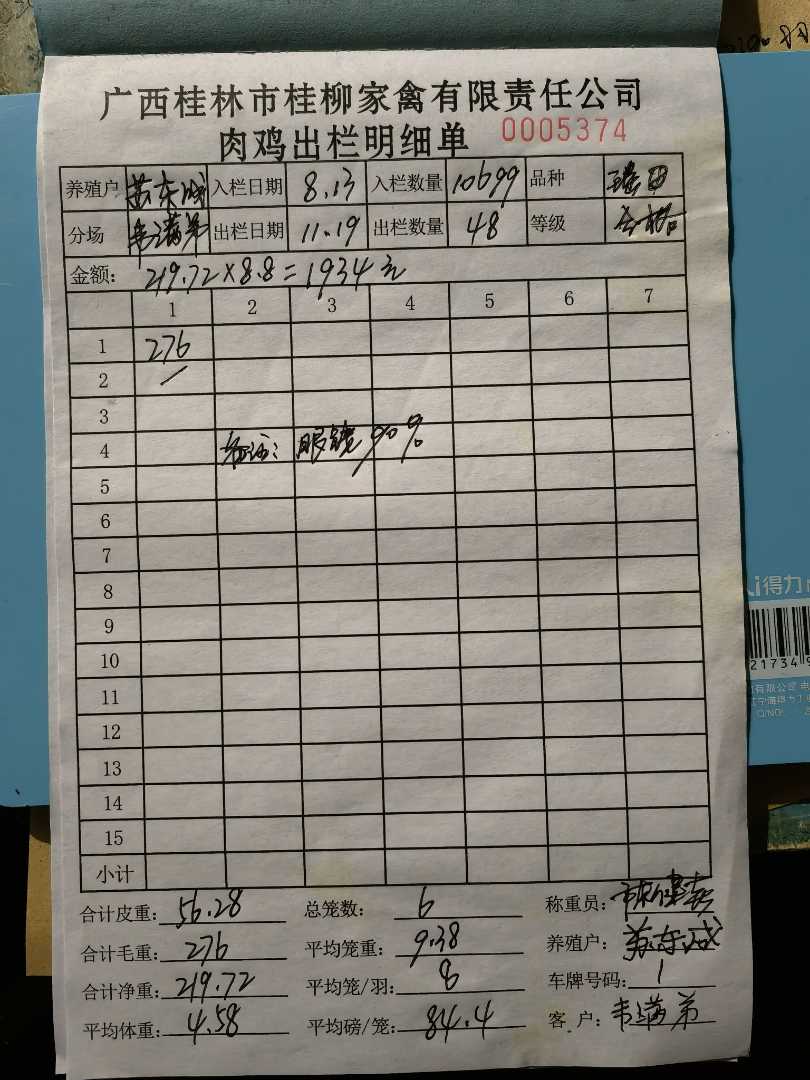 广西桂林市桂柳家禽有限责任公司
肉鸡出栏明细单 0005374
养殖户 苏东城 入栏日期 8.13 入栏数量 10699 品种 瑶田
分场 韦满弟 出栏日期 11.19 出栏数量 48 等级 合格
金额: 219.72×8.8=1934元
1 2 3 4 5 6 7
1 276
2
3
4 备注: 眼镜90%
5
6
7
8
9
10
11
12
13
14
15
小计
合计皮重: 56.28 总笼数: 6 称重员:
合计毛重: 276 平均笼重: 9.38 养殖户: 苏东城
合计净重: 219.72 平均笼/羽: 8 车牌号码: 1
平均体重: 4.58 平均磅/笼: 84.4 客户: 韦满弟
得力
21734